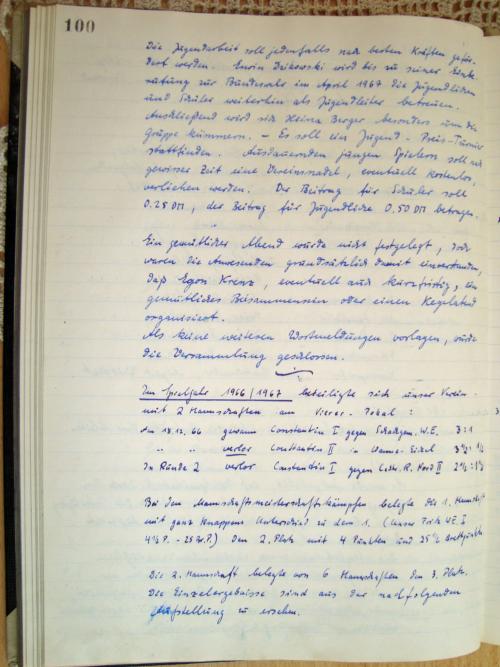 100
Die Jugendarbeit soll jedenfalls nach besten Kräften geför-
dert werden. Erwin Daikowski wird bis zu seiner Einbe-
rufung zur Bundeswehr im April 1967 die Jugendlichen
und Schüler weiterhin als Jugendleiter betreuen.
Anschließend wird sich Heinz Berger besonders um die
Gruppe kümmern. – Es soll ein Jugend-Preis-Turnier
stattfinden. Ausdauernden jungen Spielern soll nach
gewisser Zeit eine Vereinsnadel, eventuell kostenlos,
verliehen werden. Der Beitrag für Schüler soll
0.25 DM, der Beitrag für Jugendliche 0,50 DM betragen.
Ein gemütlicher Abend wurde nicht festgelegt, doch
waren die Anwesenden grundsätzlich damit einverstanden,
daß Egon Krenz, eventuell auch kurzfristig, ein
gemütliches Beisammensein oder einen Kegelabend
organisiert.
Als keine weiteren Wortmeldungen vorlagen, wurde
die Versammlung geschlossen.
Im Spieljahr 1966/1967 beteiligte sich unser Verein
mit 2 Mannschaften am Vierer-Pokal:
am 18.12.66 gewann Constantin I gegen W.E. 3:1
" " verlor Constantin II in Wanne-Eickel
In Runde 2 verlor Constantin I gegen II 2½:1½
Bei den Mannschaftsmeisterschaftskämpfen belegte die 1. Mannschaft
mit ganz knappem Unterschied zu dem 1. WE. I
den 2. Platz mit 4 Punkten und 25½ Brettpunkten
Die 2. Mannschaft belegte von 6 Mannschaften den 3. Platz.
Die Einzelergebnisse sind aus der nachfolgenden
Aufstellung zu ersehen.